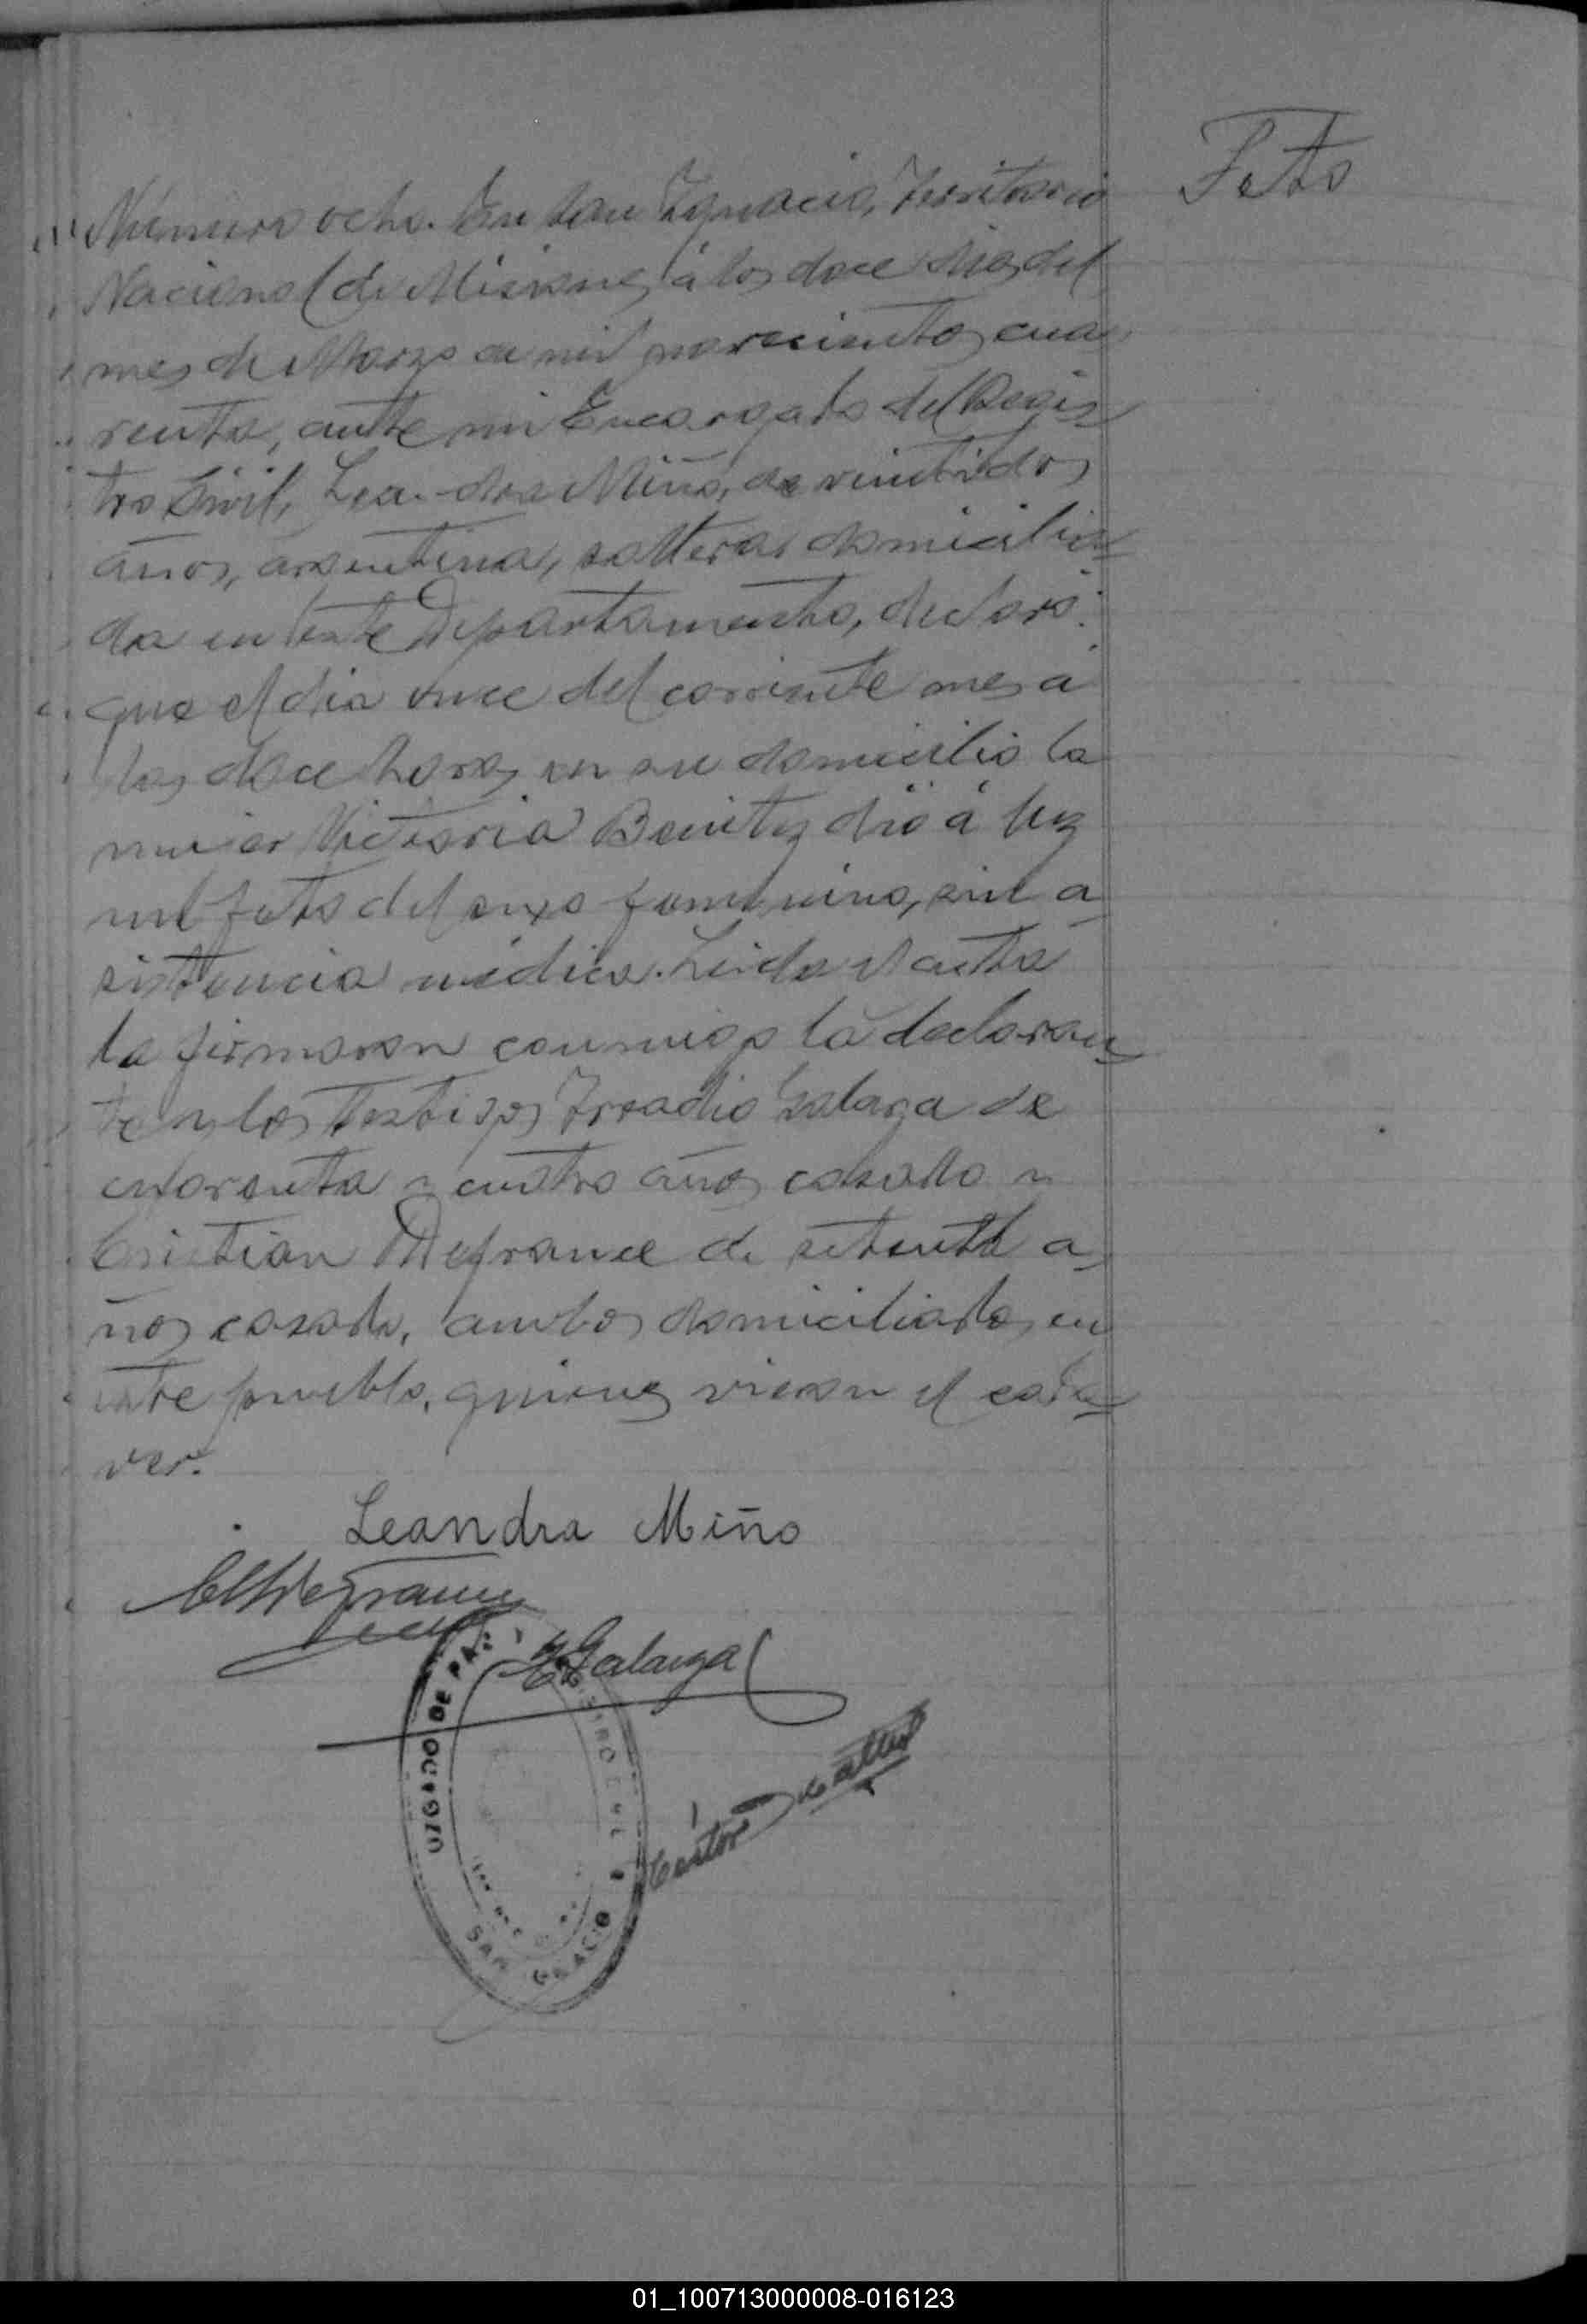 Feto
Número ocho. En San Ignacio, Territorio
Nacional de Misiones á los doce dias del
mes de Marzo de mil novecientos cua
renta, ante mi Encargado del Regis
tro Civil, Leandra Miño, de veintidos
años, argentina, soltera, domicilia
da en este Departamento, declaró:
que el dia once del corriente mes á
las doce horas en su domicilio la
mujer Victoria Benitez dió á luz
un feto del sexo femenino, sin a
sistencia médica. Leida el acta
la firmaron conmigo la declaran
te y los testigos Galarza de
cuarenta y cuatro años casado y
Cristian Defrance de setenta a
ños casado, ambos domiciliados en
este pueblo, quienes vieron el cada
ver.
Leandra Miño
Galarza
DE PAZ
SAN IGNACIO
01_100713000008-016123